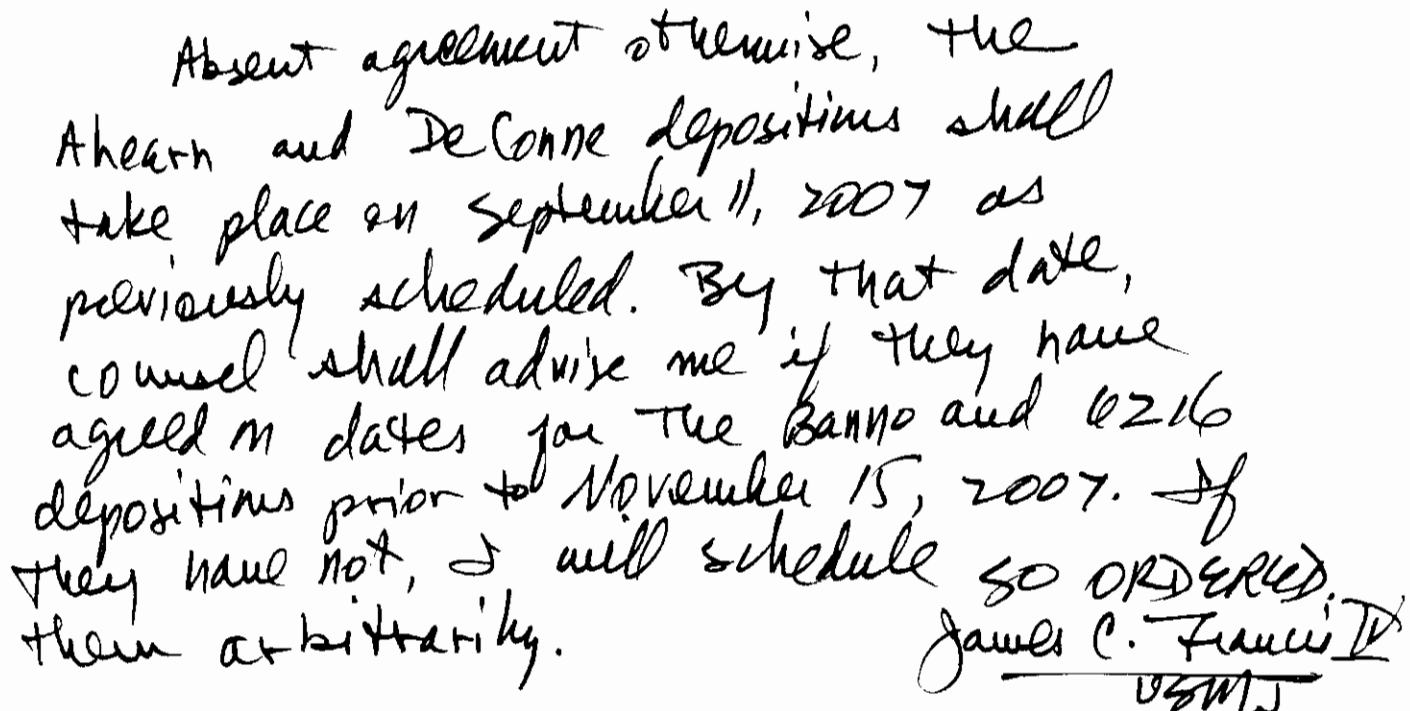 Absent agreement otherwise, the
Ahearn and DeConne depositions shall
take place on September 11, 2007 as
previously scheduled. By that date,
counsel shall advise me if they have
agreed on dates for the Banno and 6216
depositions prior to November 15, 2007. If
they have not, I will schedule
them arbitrarily.
SO ORDERED.
James C. Francis IV
USMJ